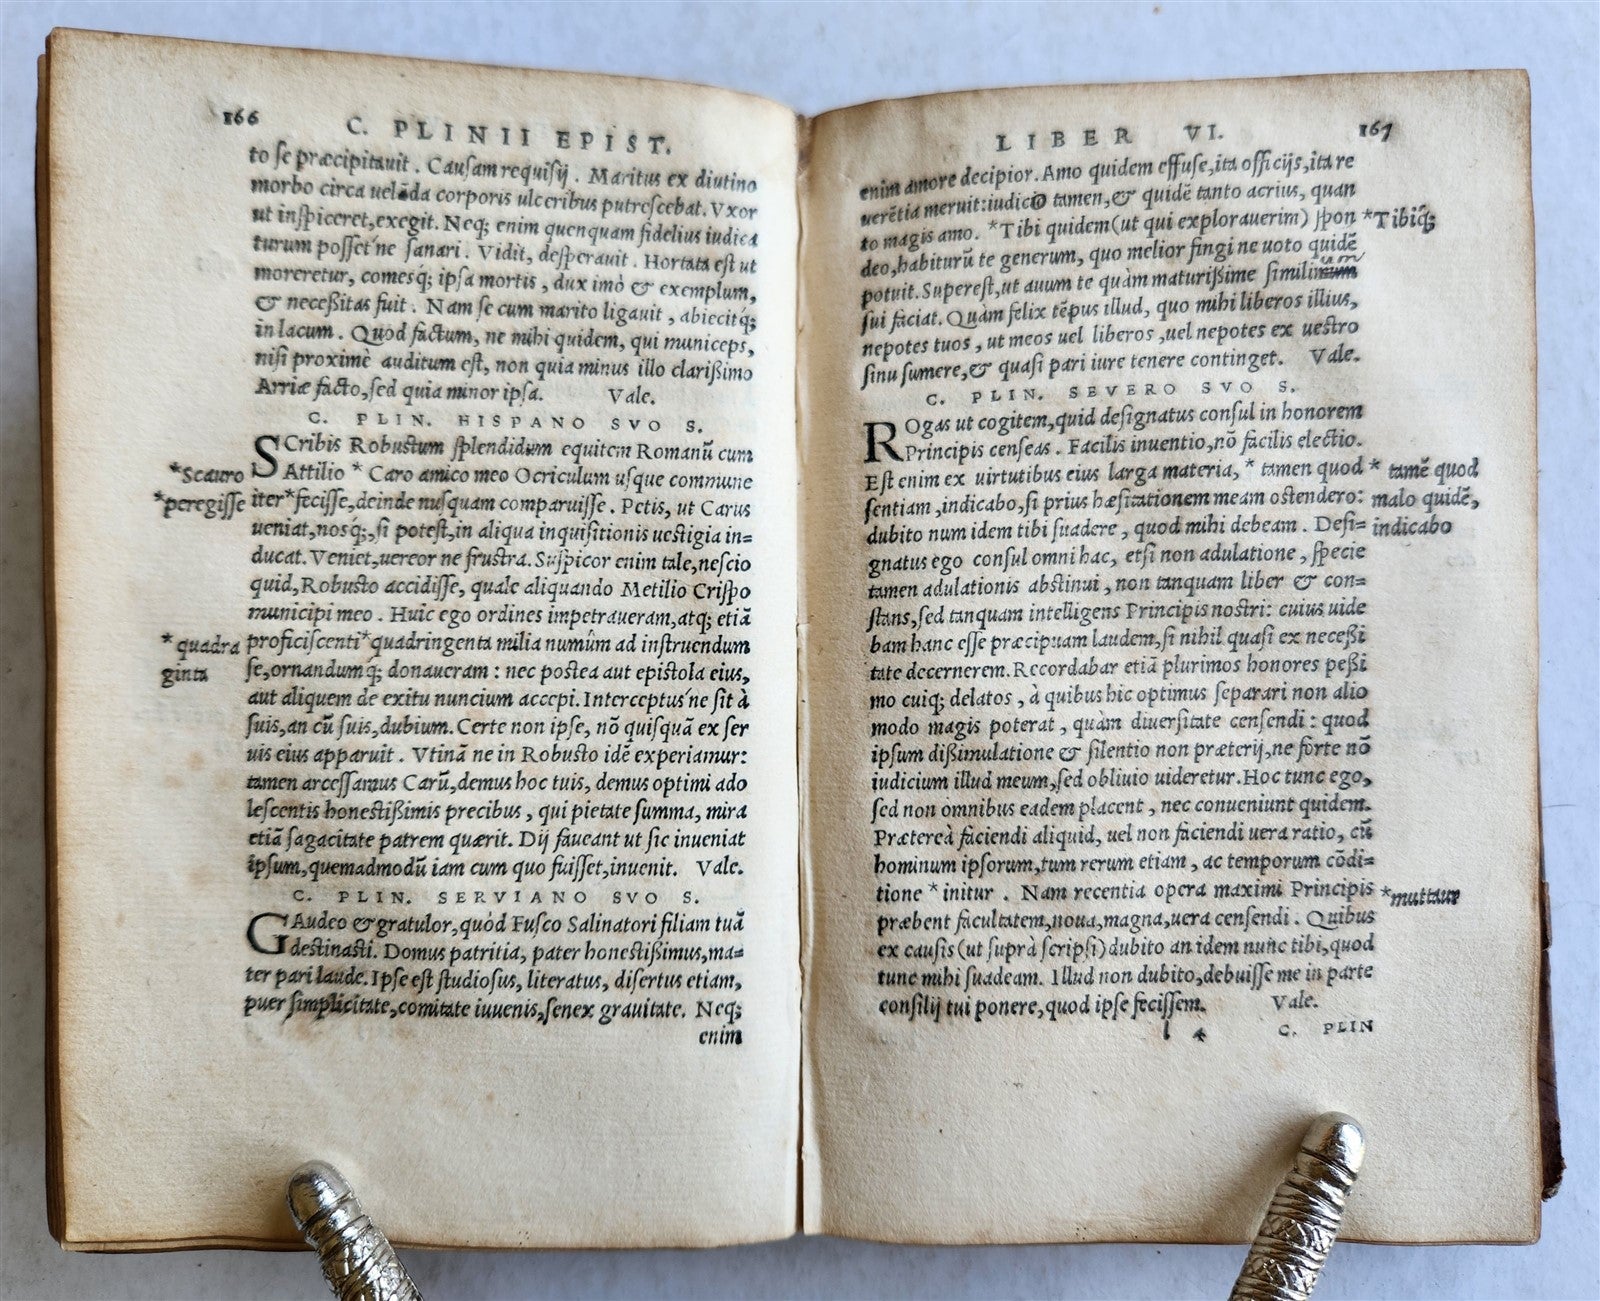 166
C. PLINII EPIST.
to se præcipitauit. Causam requisij. Maritus ex diutino
morbo circa uelāda corporis ulceribus putrescebat. Vxor
ut inspiceret, exegit. Neq; enim quenquam fidelius iudica
turum posset ne sanari. Vidit, desperauit. Hortata est ut
moreretur, comesq́; ipsa mortis, dux imò & exemplum,
& neceßitas fuit. Nam se cum marito ligauit, abiecitq́;
in lacum. Quod factum, ne mihi quidem, qui municeps,
nisi proximè auditum est, non quia minus illo clarißimo
Arriæ facto, sed quia minor ipsa. Vale.
C. PLIN. HISPANO SVO S.
SCribis Robustum splendidum equitem Romanū cum
*Scauro
Attilio * Caro amico meo Ocriculum usque commune
*peregisse
iter*fecisse, deinde nusquam comparuisse. Petis, ut Carus
ueniat, nosq́;, si potest, in aliqua inquisitionis uestigia in=
ducat. Veniet, uereor ne frustra. Suspicor enim tale, nescio
quid, Robusto accidisse, quale aliquando Metilio Crispo
municipi meo. Huic ego ordines impetraueram, atq; etiā
*quadra
proficiscenti*quadringenta milia numûm ad instruendum
ginta
se, ornandumq́; donaueram: nec postea aut epistola eius,
aut aliquem de exitu nuncium accepi. Interceptus ne sit à
suis, an cū suis, dubium. Certe non ipse, nō quisquā ex ser
uis eius apparuit. Vtinā ne in Robusto idē experiamur:
tamen arcessamus Carū, demus hoc tuis, demus optimi ado
lescentis honestißimis precibus, qui pietate summa, mira
etiā sagacitate patrem quærit. Dij faueant ut sic inueniat
ipsum, quemadmodū iam cum quo fuisset, inuenit. Vale.
C. PLIN. SERVIANO SVO S.
GAudeo & gratulor, quòd Fusco Salinatori filiam tuā
destinasti. Domus patritia, pater honestißimus, ma=
ter pari laude. Ipse est studiosus, literatus, disertus etiam,
puer simplicitate, comitate iuuenis, senex grauitate. Neq;
enim
LIBER VI. 167
enim amore decipior. Amo quidem effuse, ita officijs, ita re
uerētia meruit: iudicio tamen, & quidē tanto acrius, quan
to magis amo. *Tibi quidem (ut qui explorauerim) spon
*Tibiq́;
deo, habiturū te generum, quo melior fingi ne uoto quidē
potuit. Superest, ut auum te quàm maturißime similinum
um
sui faciat. Quàm felix tēpus illud, quo mihi liberos illius,
nepotes tuos, ut meos uel liberos, uel nepotes ex uestro
sinu sumere, & quasi pari iure tenere continget. Vale.
C. PLIN. SEVERO SVO S.
ROgas ut cogitem, quid designatus consul in honorem
Principis censeas. Facilis inuentio, nō facilis electio.
Est enim ex uirtutibus eius larga materia, * tamen quod
* tamē quod
sentiam, indicabo, si prius hæsitationem meam ostendero:
malo quidē,
dubito num idem tibi suadere, quod mihi debeam. Desi=
indicabo
gnatus ego consul omni hac, etsi non adulatione, specie
tamen adulationis abstinui, non tanquam liber & con=
stans, sed tanquam intelligens Principis nostri: cuius uide
bam hanc esse præcipuam laudem, si nihil quasi ex neceßi
tate decernerem. Recordabar etiā plurimos honores peßi
mo cuiq; delatos, à quibus hic optimus separari non alio
modo magis poterat, quàm diuersitate censendi: quod
ipsum dißimulatione & silentio non præterij, ne forte nō
iudicium illud meum, sed obliuio uideretur. Hoc tunc ego,
sed non omnibus eadem placent, nec conueniunt quidem.
Prætereà faciendi aliquid, uel non faciendi uera ratio, cū
hominum ipsorum, tum rerum etiam, ac temporum cōdi=
tione *initur. Nam recentia opera maximi Principis
*muttaur
præbent facultatem, noua, magna, uera censendi. Quibus
ex causis (ut suprà scripsi) dubito an idem nunc tibi, quod
tunc mihi suadeam. Illud non dubito, debuisse me in parte
consilij tui ponere, quod ipse fecissem. Vale.
l 4 C. PLIN